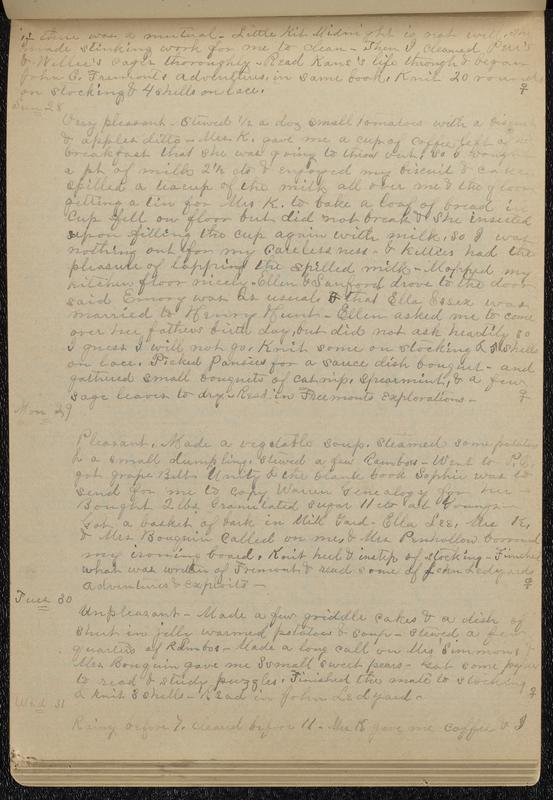 there was a mutual - Little Kit Midnight is not well. She
made stinking work for me to clean - Then I cleaned Peri's
& Willie's cages thoroughly - Read Kane's life through & began
John C. Fremont's Adventures, in same book. Knit 20 rounds
on stocking & 4 shells on lace.
Sun 28
Very pleasant - Stewed ½ a doz small tomatoes with a biscuit
& apples ditto - Mrs. K. gave me a cup of coffee left of
breakfast that she was going to throw out. So I bought
a pt of milk 2½ cts & enjoyed my biscuit & cake.
Spilled a teacup of the milk all over me & the floor
getting a tin for Mrs K. to bake a loaf of bread in
Cup fell on floor but did not break & She insisted
upon filling the cup again with milk, so I was
nothing out for my carelessness - & kitties had the
pleasure of lapping the spilled milk - Mopped my
kitchen floor nicely - Ellen & Sanford drove to the door
said Emory was as usual & that Ella Essex was
married to Henry Hunt - Ellen asked me to come
over her fathers birth day, but did not ask heartily so
I guess I will not go. Knit some on stocking & 5 shells
on lace. Picked Pansies for a sauce dish bouquet - and
gathered small bouquets of catnip, spearmint, & a few
sage leaves to dry - Read in Fremonts explorations -
Mon 29
Pleasant. Made a vegetable soup. Steamed some potatoes
& a small dumpling. Stewed a few Rambos - Went to P.O.
got Grape Belt. Unity & the blank book Sophie was to
send for me to copy Warren Genealogy for her -
Bought 2 lbs Granulated sugar 11 cts at Youngs -
Got a basket of bark in Mill Yard - Ella Lee, Mrs K,
& Mrs Bouquin called on me, & Mrs Penhollow borrowed
my ironing board. Knit heel & instep of stocking - Finished
what was written of Fremont & read some of John Ledyards
Adventures & exploits -
Tues 30
Unpleasant - Made a few griddle cakes & a dish of
warmed potatoes & soup - Stewed a few
quarters of Rambos - Made a long call on Mrs Simmons &
Mrs Bouquin gave me 3 small sweet pears - Got some papers
to read & study puzzles. Finished the mate to stocking
& knit 3 shells - Read in John Ledyard -
Wed 31
Rainy before 7. cleared before 11 - Mrs K gave me coffee & I